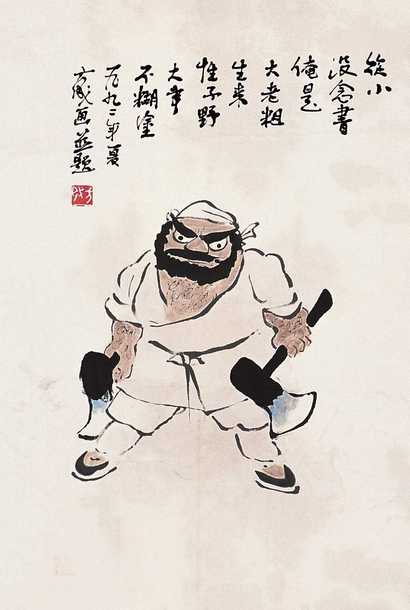 從小
没念書
俺是
大老粗
生来
性子野
大事
不糊塗
一九九二年夏
方成画並題